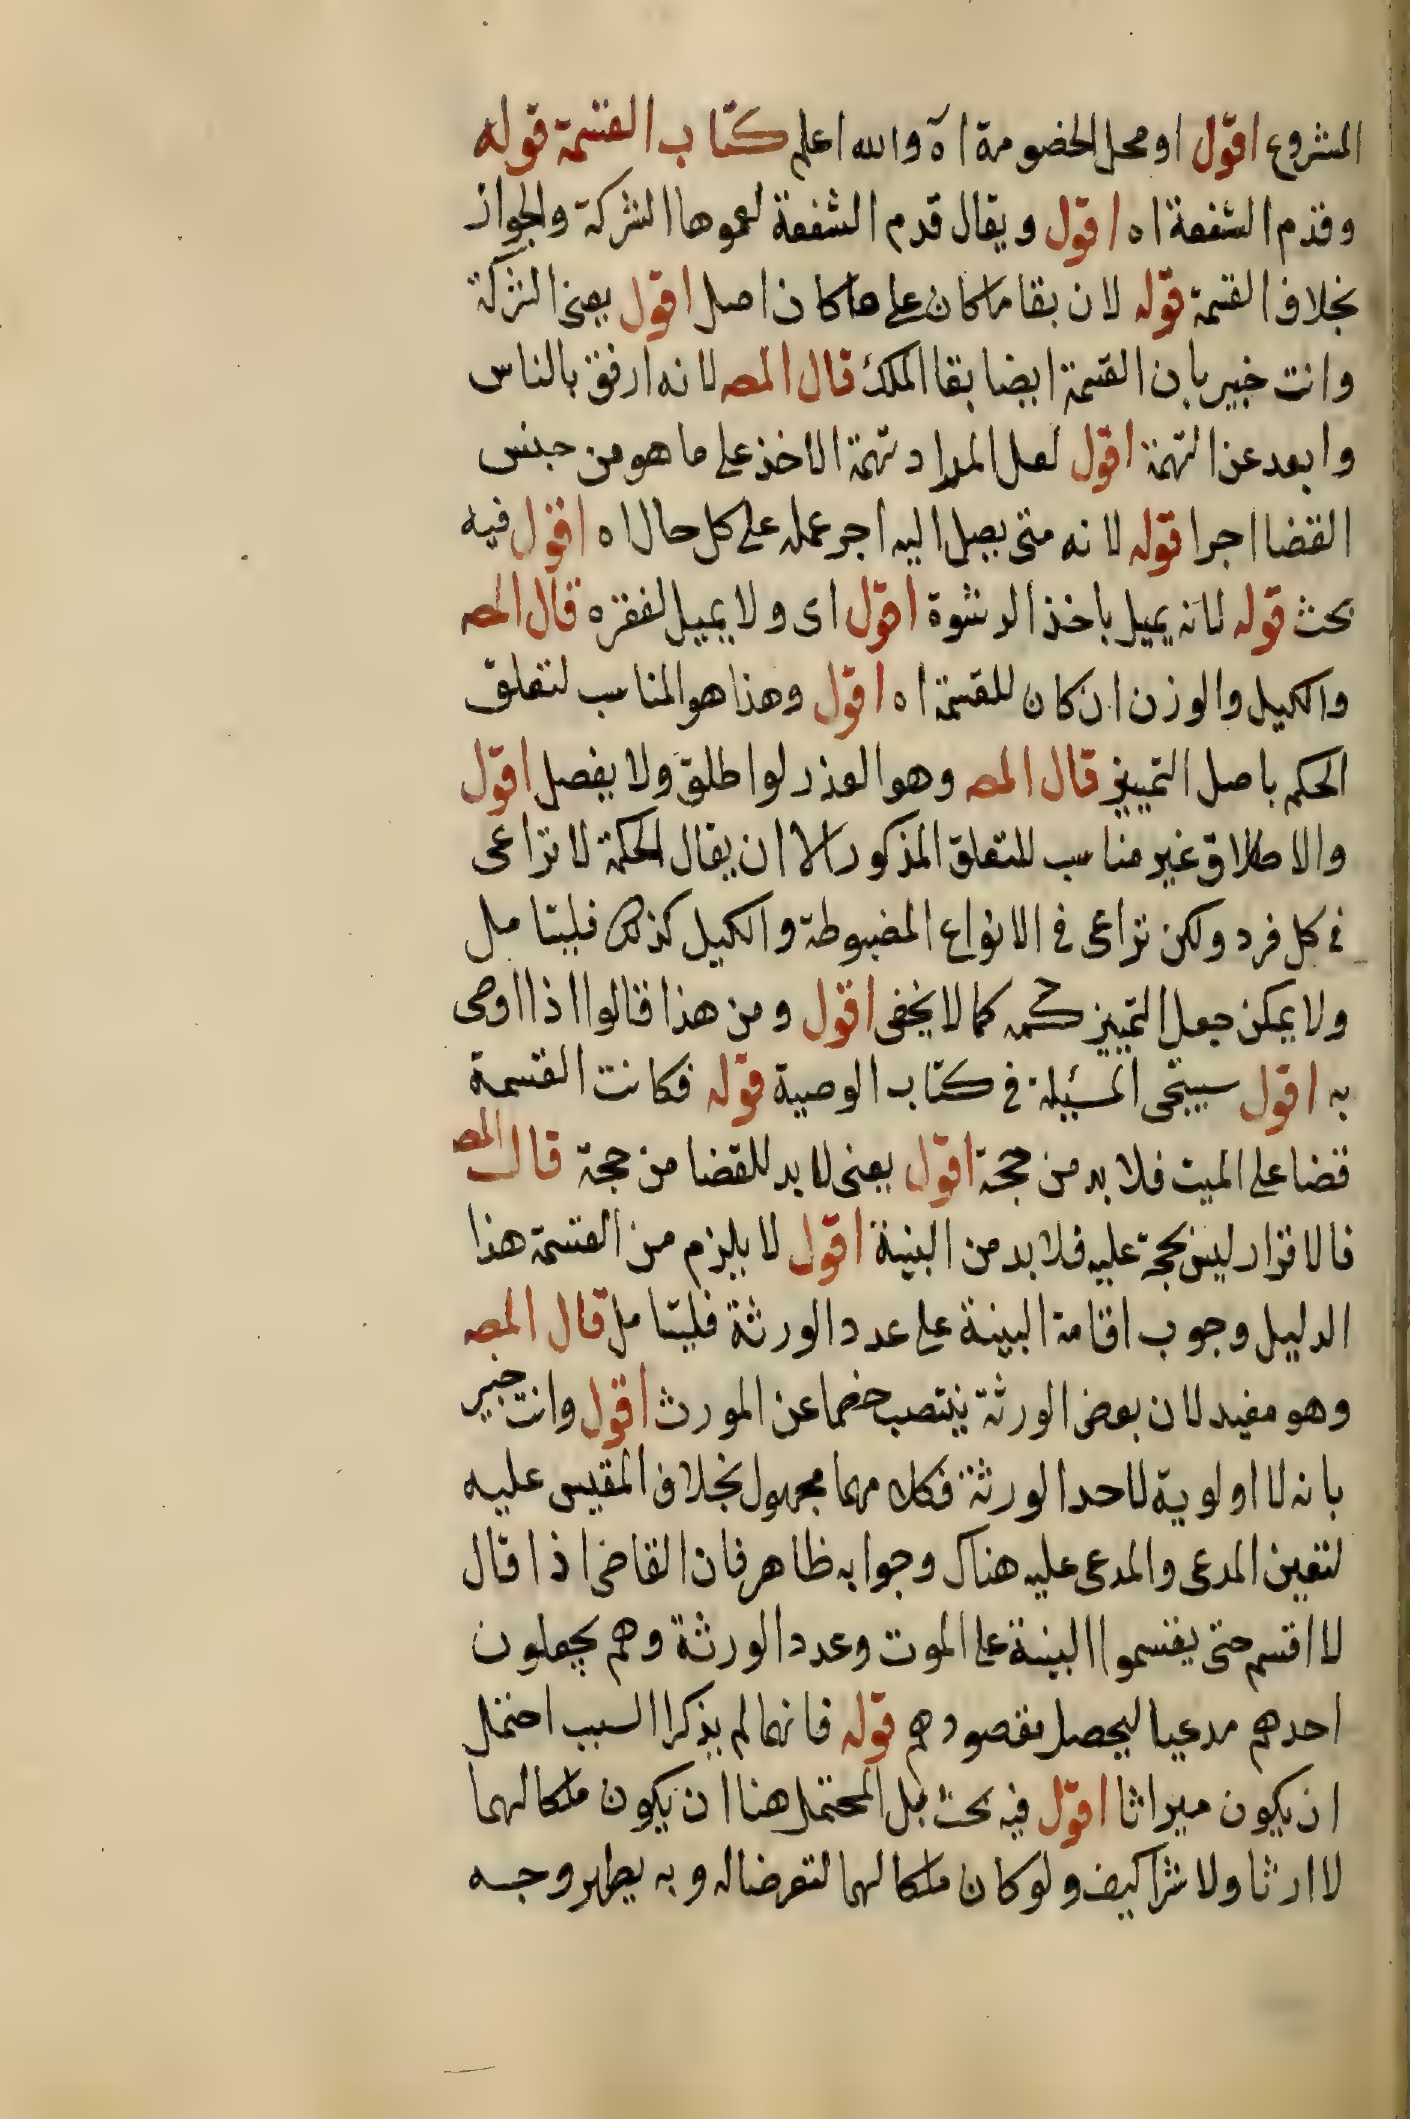 المشروع اقول او محل الخصومة اه والله اعلم كتاب القسمة قوله
وقدم الشفعة اه اقول ويقال قدم الشفعة لعموها الشركة والجواز
بخلاف القسمة قوله لان بقا ماكان على ماكان اصل اقول يعنى الشركة
وانت خبير بان القسمة ايضا بقا الملك قال المص لانه ارفق بالناس
وابعد عن التهمة اقول لعل المراد تهمة الاخذ على ما هو من جنس
القضا اجرا قوله لانه متى يصل اليه اجر عمله على كل حال اه اقول فيه
بحث قوله لانه يميل باخذ الرشوة اقول اى ولا يميل لفقره قال المص
والكيل والوزن ان كان للقسمة اه اقول وهذا هو المناسب لتعلق
الحكم باصل التمييز قال المص وهو العذر لو اطلق ولا يفصل اقول
والاطلاق غير مناسب للتعلق المذكور الا ان يقال الحكمة لا تراعى
فى كل فرد ولكن تراعى فى الانواع المضبوطة والكيل كذلك فليتامل
ولا يمكن جعل التمييز حكمه كما لا يخفى اقول ومن هذا قالوا اذا اوصى
به اقول سيجى المسئلة فى كتاب الوصية قوله فكانت القسمة
قضا على الميت فلا بد من حجة اقول يعنى لا بد للقضا من حجة قال المص
فالاقرار ليس بحجة عليه فلا بد من البينة اقول لا يلزم من القسمة هذا
الدليل وجوب اقامة البينة على عدد الورثة فليتامل قال المص
وهو مفيد لان بعض الورثة ينتصب خصما عن المورث اقول وانت خبير
بانه لا اولوية لاحد الورثة فكل منهما مجهول بخلاف المقيس عليه
لتعين المدعى والمدعى عليه هناك وجوابه ظاهر فان القاضى اذا قال
لا اقسم حتى يقسموا البينة على الموت وعدد الورثة وهم يجعلون
احدهم مدعيا ليحصل مقصودهم قوله فانهما لم يذكرا السبب احتمل
ان يكون ميراثا اقول فيه بحث بل المحتمل هنا ان يكون ملكا لهما
لا ارثا ولا شرا كيف ولو كان ملكا لهما لتعرضا له وبه يظهر وجه